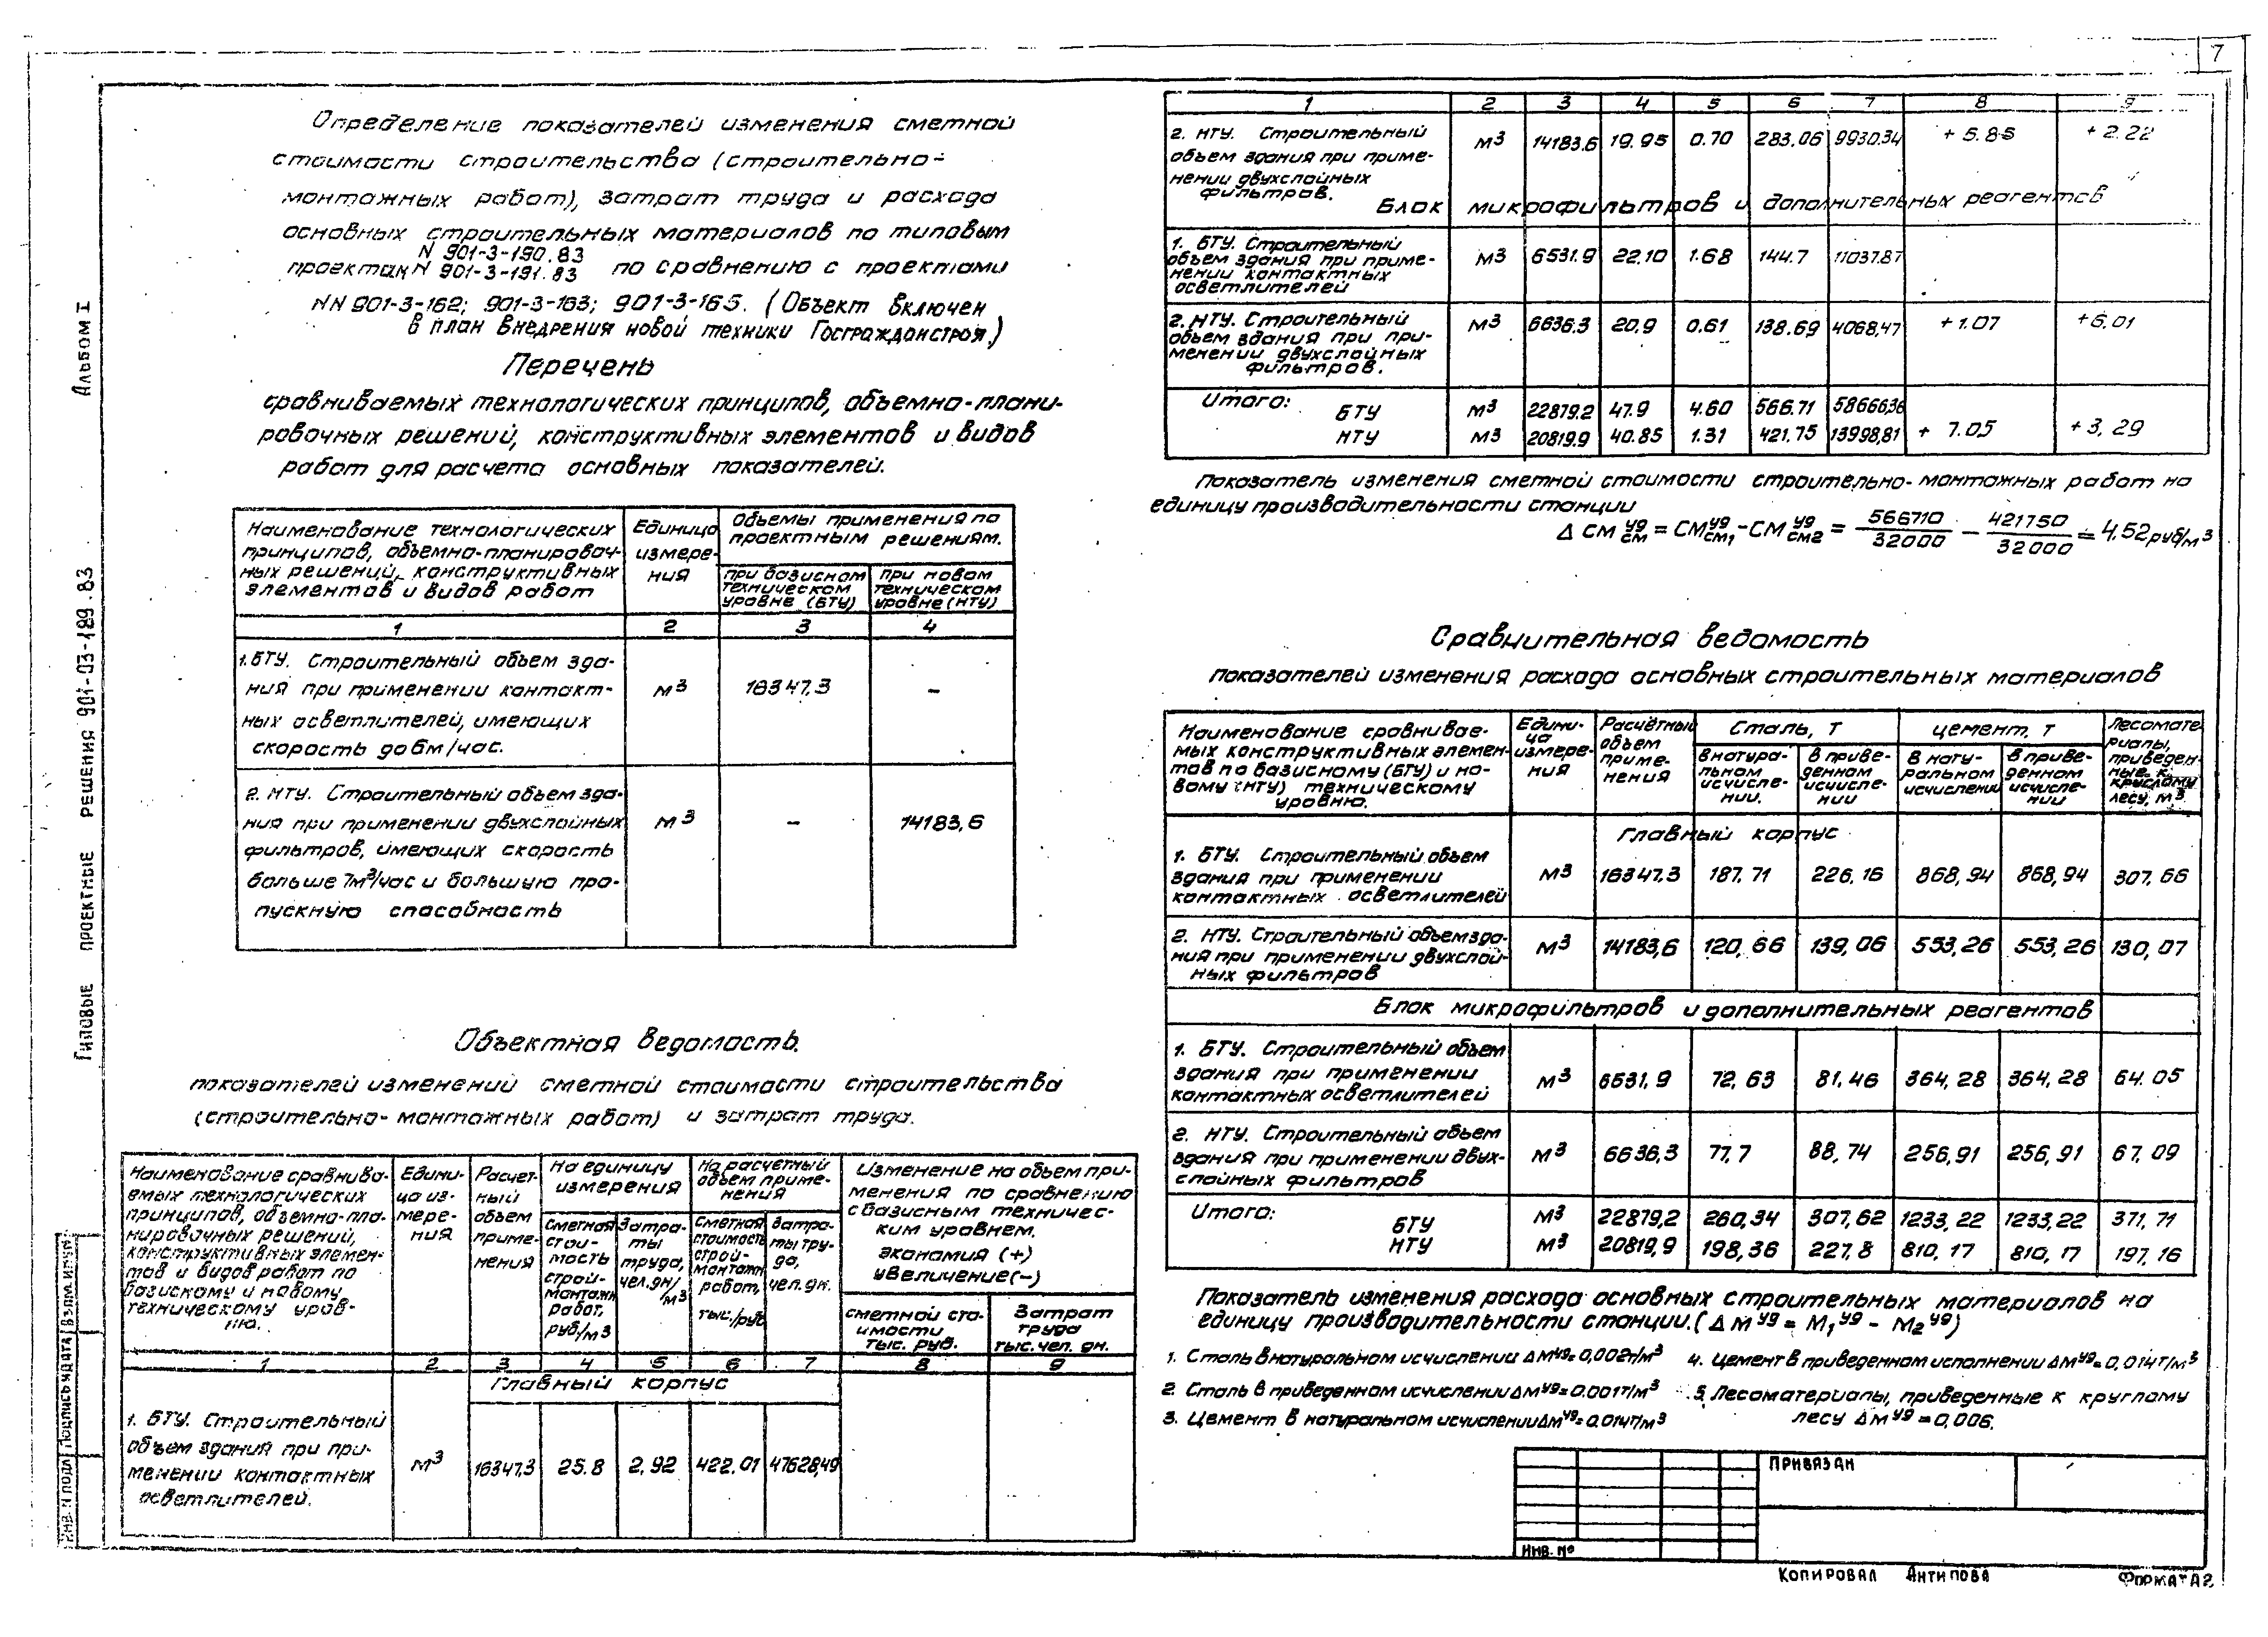 7
Альбом I
Типовые проектные решения 901-03-189.83
Определение показателей изменения сметной
стоимости строительства (строительно-
монтажных работ), затрат труда и расхода
основных строительных материалов по типовым
проектам N 901-3-190.83
N 901-3-191.83 по сравнению с проектами
NN 901-3-162; 901-3-163; 901-3-165. (Объект включен
в план внедрения новой техники Госгражданстроя.)
Перечень
сравниваемых технологических принципов, объемно-плани-
ровочных решений, конструктивных элементов и видов
работ для расчета основных показателей.
Наименование технологических
принципов, объемно-планировоч-
ных решений, конструктивных
элементов и видов работ
Единица
измере-
ния
Объемы применения по
проектным решениям.
при базисном
техническом
уровне (БТУ)
при новом
техническом
уровне (НТУ)
1 2 3 4
1. БТУ. Строительный объем зда-
ния при применении контакт- м³ 16347.3 –
ных осветлителей, имеющих
скорость до 6м/час.
2. НТУ. Строительный объем зда-
ния при применении двухслойных м³ – 14183,6
фильтров, имеющих скорость
больше 7м³/час и большую про-
пускную способность
Объектная ведомость.
показателей изменений сметной стоимости строительства
(строительно-монтажных работ) и затрат труда.
Наименование сравнива-
емых технологических
принципов, объемно-пла-
нировочных решений,
конструктивных элемен-
тов и видов работ по
базисному и новому
техническому уров-
ню.
Едини-
ца из-
мере-
ния
Расчет-
ный
объем
приме-
нения
На единицу
измерения
Сметная
стои-
мость
строй-
монтажн
работ,
руб/м³
Затра-
ты
труда,
чел.дн/
м³
На расчетный
объем приме-
нения
Сметная
стоимость
строй-
монтажн
работ,
тыс./руб
Затра-
ты тру-
да,
чел. дн.
Изменение на объем при-
менения по сравнению
с базисным техничес-
ким уровнем.
экономия (+)
увеличение(-)
сметной сто-
имости
тыс. руб.
Затрат
труда
тыс. чел. дн.
1 2 3 4 5 6 7 8 9
Главный корпус
1. БТУ. Строительный
объем здания при при-
менении контактных м³ 16347.3 25.8 2.92 422.01 47628,49
осветлителей.
1 2 3 4 5 6 7 8 9
2. НТУ. Строительный м³ 14183.6 19.95 0.70 283.06 9930.34 + 5.85 + 2.22
объем здания при приме-
нении двухслойных
фильтров.
Блок микрофильтров и дополнительных реагентов
1. БТУ. Строительный
объем здания при приме- м³ 6531.9 22.10 1.68 144.7 11037.87
нении контактных
осветлителей
2. НТУ. Строительный м³ 6636.3 20.9 0.61 138.69 4068,47 +1.07 +6.01
объем здания при при-
менении двухслойных
фильтров.
Итого: БТУ м³ 22879.2 47.9 4.60 566.71 58666,36
НТУ м³ 20819.9 40.85 1.31 421.75 13998,81 + 7.05 + 3,29
Показатель изменения сметной стоимости строительно-монтажных работ на
единицу производительности станции
Δ СМ уд см = СМ уд см₁ - СМ уд см2 = 566710/32000 – 421750/32000 = 4,52 руб/м³
Сравнительная ведомость
показателей изменения расхода основных строительных материалов
Наименование сравнивае-
мых конструктивных элемен-
тов по базисному (БТУ) и но-
вому (НТУ) техническому
уровню.
Едини-
ца
измере-
ния
Расчётный
объем
приме-
нения
Сталь, т
в натура-
льном
исчисле-
нии.
в приве-
денном
исчисле-
нии
цемент, т
в нату-
ральном
исчислении
в приве-
денном
исчисле-
нии
Лесомате
риалы,
приведен-
ные к
круглому
лесу, м³
Главный корпус
1. БТУ. Строительный объем
здания при применении м³ 16347.3 187.71 226.16 868,94 868,94 307.66
контактных осветлителей
2. НТУ. Строительный объем зда-
ния при применении двухслой- м³ 14183,6 120,66 139,06 553,26 553,26 130,07
ных фильтров
Блок микрофильтров и дополнительных реагентов
1. БТУ. Строительный объем
здания при применении м³ 6531,9 72,63 81.46 364,28 364,28 64.05
контактных осветлителей
2. НТУ. Строительный объем
здания при применении двух- м³ 6636,3 77,7 88,74 256,91 256,91 67.09
слойных фильтров
Итого: БТУ м³ 22879,2 260,34 307,62 1233,22 1233,22 371,71
НТУ м³ 20819,9 198,36 227,8 810,17 810,17 197,16
Показатель изменения расхода основных строительных материалов на
единицу производительности станции. (Δ М уд = М₁ уд – М₂ уд)
1. Сталь в натуральном исчислении ΔМуд= 0,002т/м³
2. Сталь в приведенном исчислении ΔМуд=0.001т/м³
3. Цемент в натуральном исчислении ΔМуд= 0.014т/м³
4. Цемент в приведенном исполнении ΔМуд=0,014т/м³
5. Лесоматериалы, приведенные к круглому
лесу ΔМуд = 0,006.
Привязан
Инв. №
Инв. N подл Подпись и дата Взам. инв. N
Копировал Антипова Формат А2